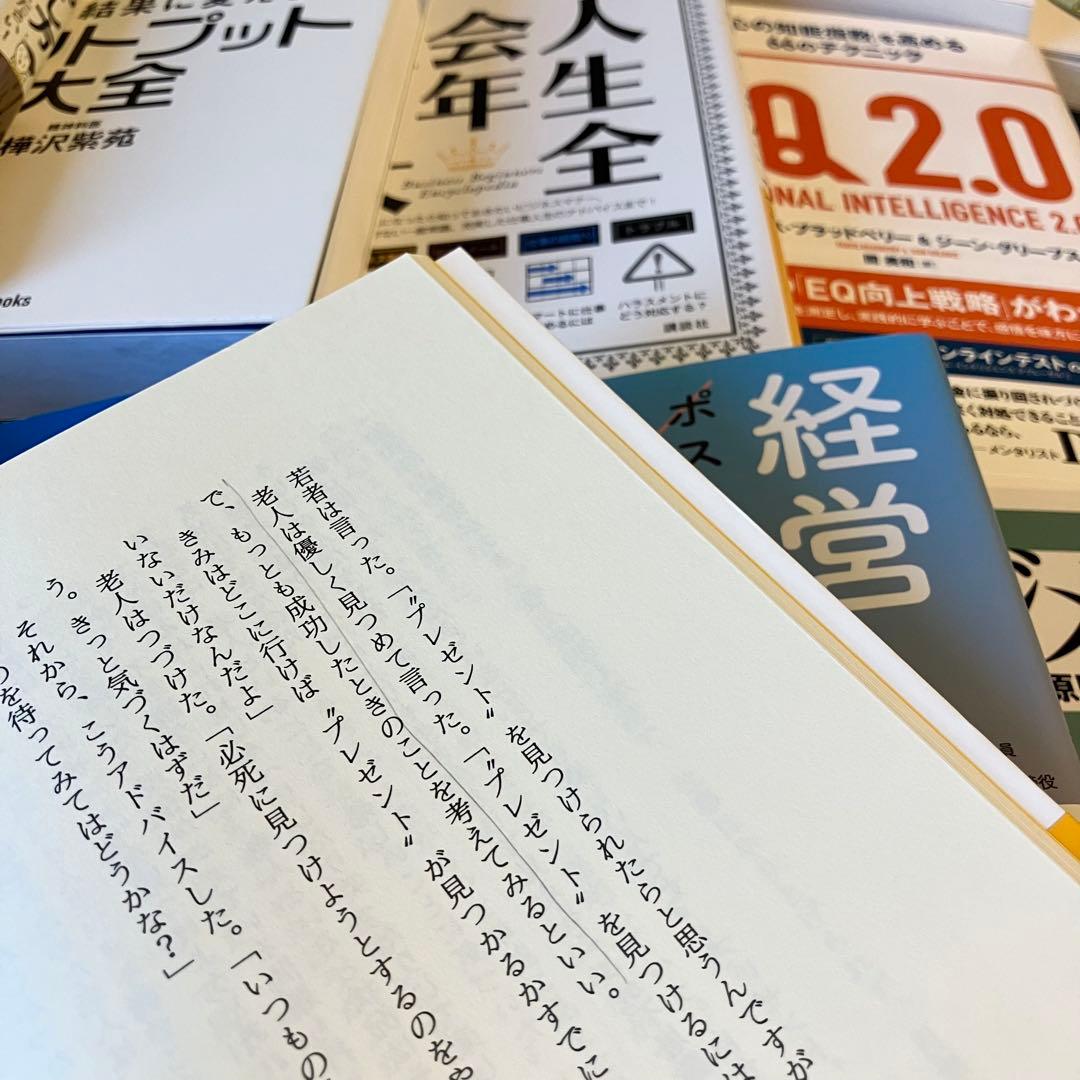 結果に変え
トプット
大全
精神科医
樺沢紫苑
ooks
人生全
会年
Business Beginners
Encyclopedia
トラブル
ハラスメントに
どう対応する？
講談社
心の知能指数」を高める
66のテクニック
Q 2.0
ONAL INTELLIGENCE 2.0
ス・ブラッドベリー & ジーン・グリーブス
関 美和 訳
「EQ向上戦略」がわ
ンラインテストの
メンタリスト D
経営
ポス
員
締役
原
若者は言った。「〝プレゼント〟を見つけられたらと思うんですが
老人は優しく見つめて言った。「〝プレゼント〟を見つけるには
で、もっとも成功したときのことを考えてみるといい。
きみはどこに行けば〝プレゼント〟が見つかるかすでに
いないだけなんだよ」
老人はつづけた。「必死に見つけようとするのをや
う。きっと気づくはずだ」
それから、こうアドバイスした。「いつもの
を待ってみてはどうかな？」